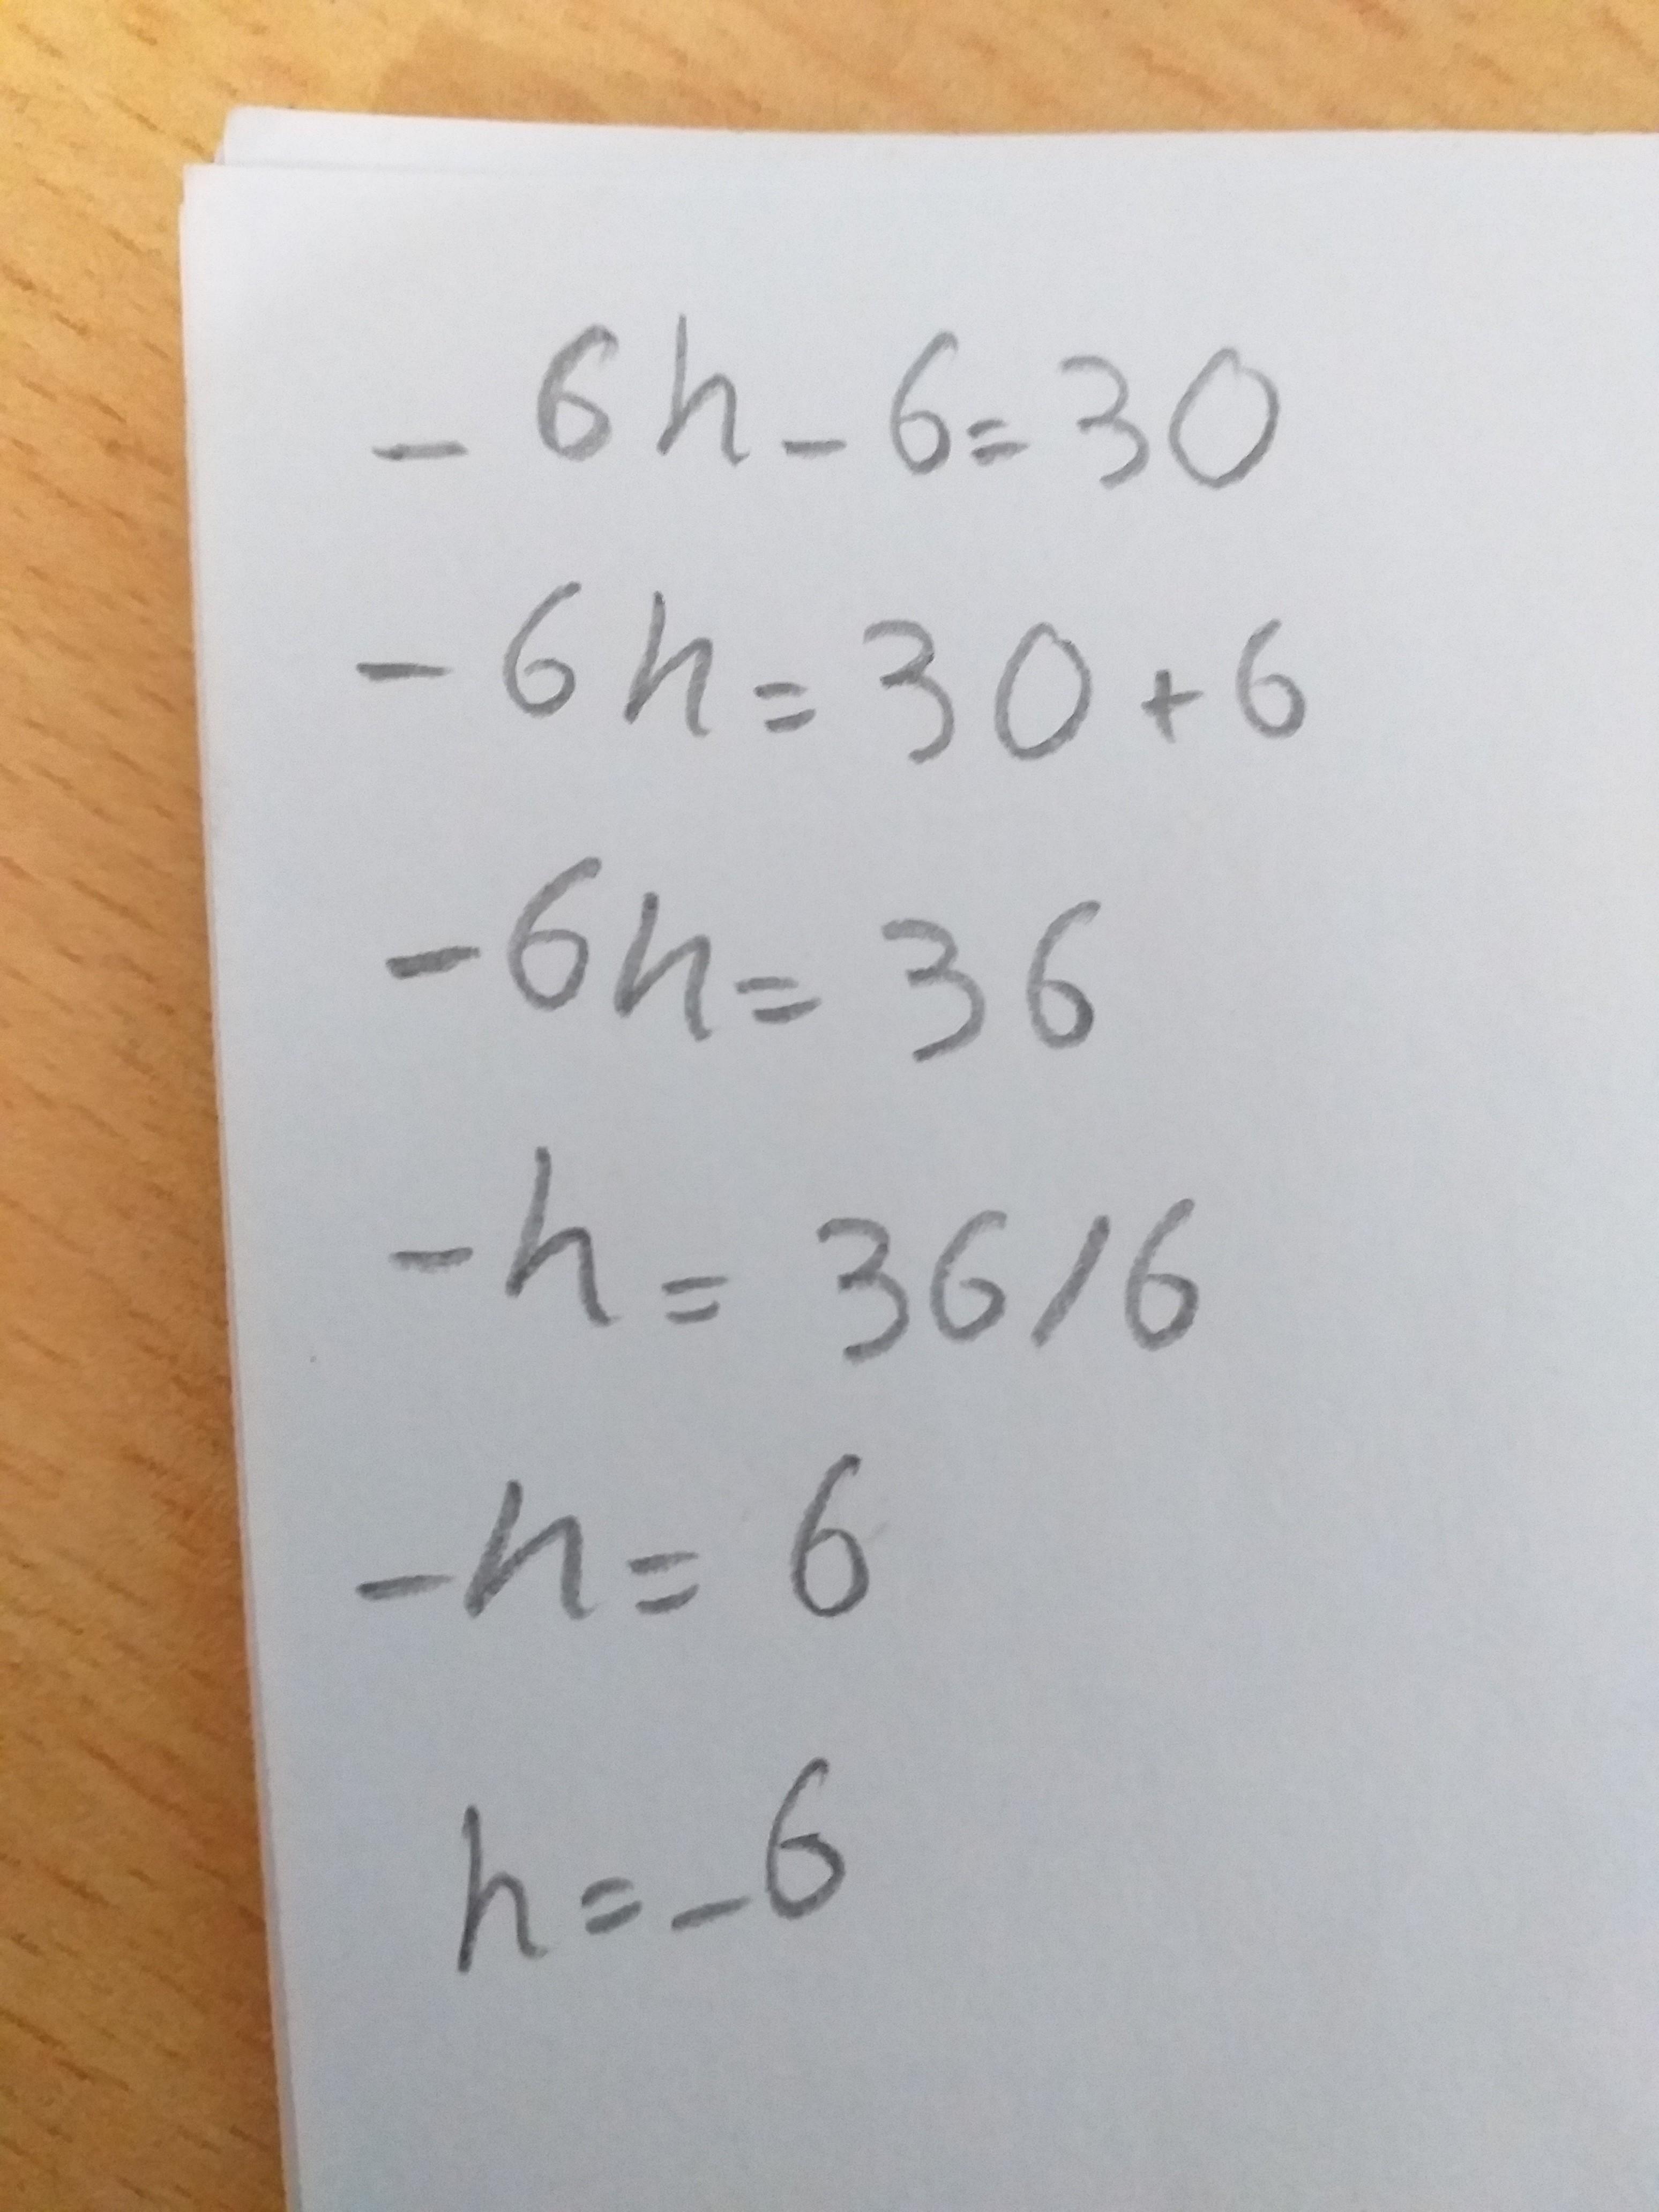 -6h-6=30
-6h=30+6
-6h=36
-h=36/6
-h=6
h=-6